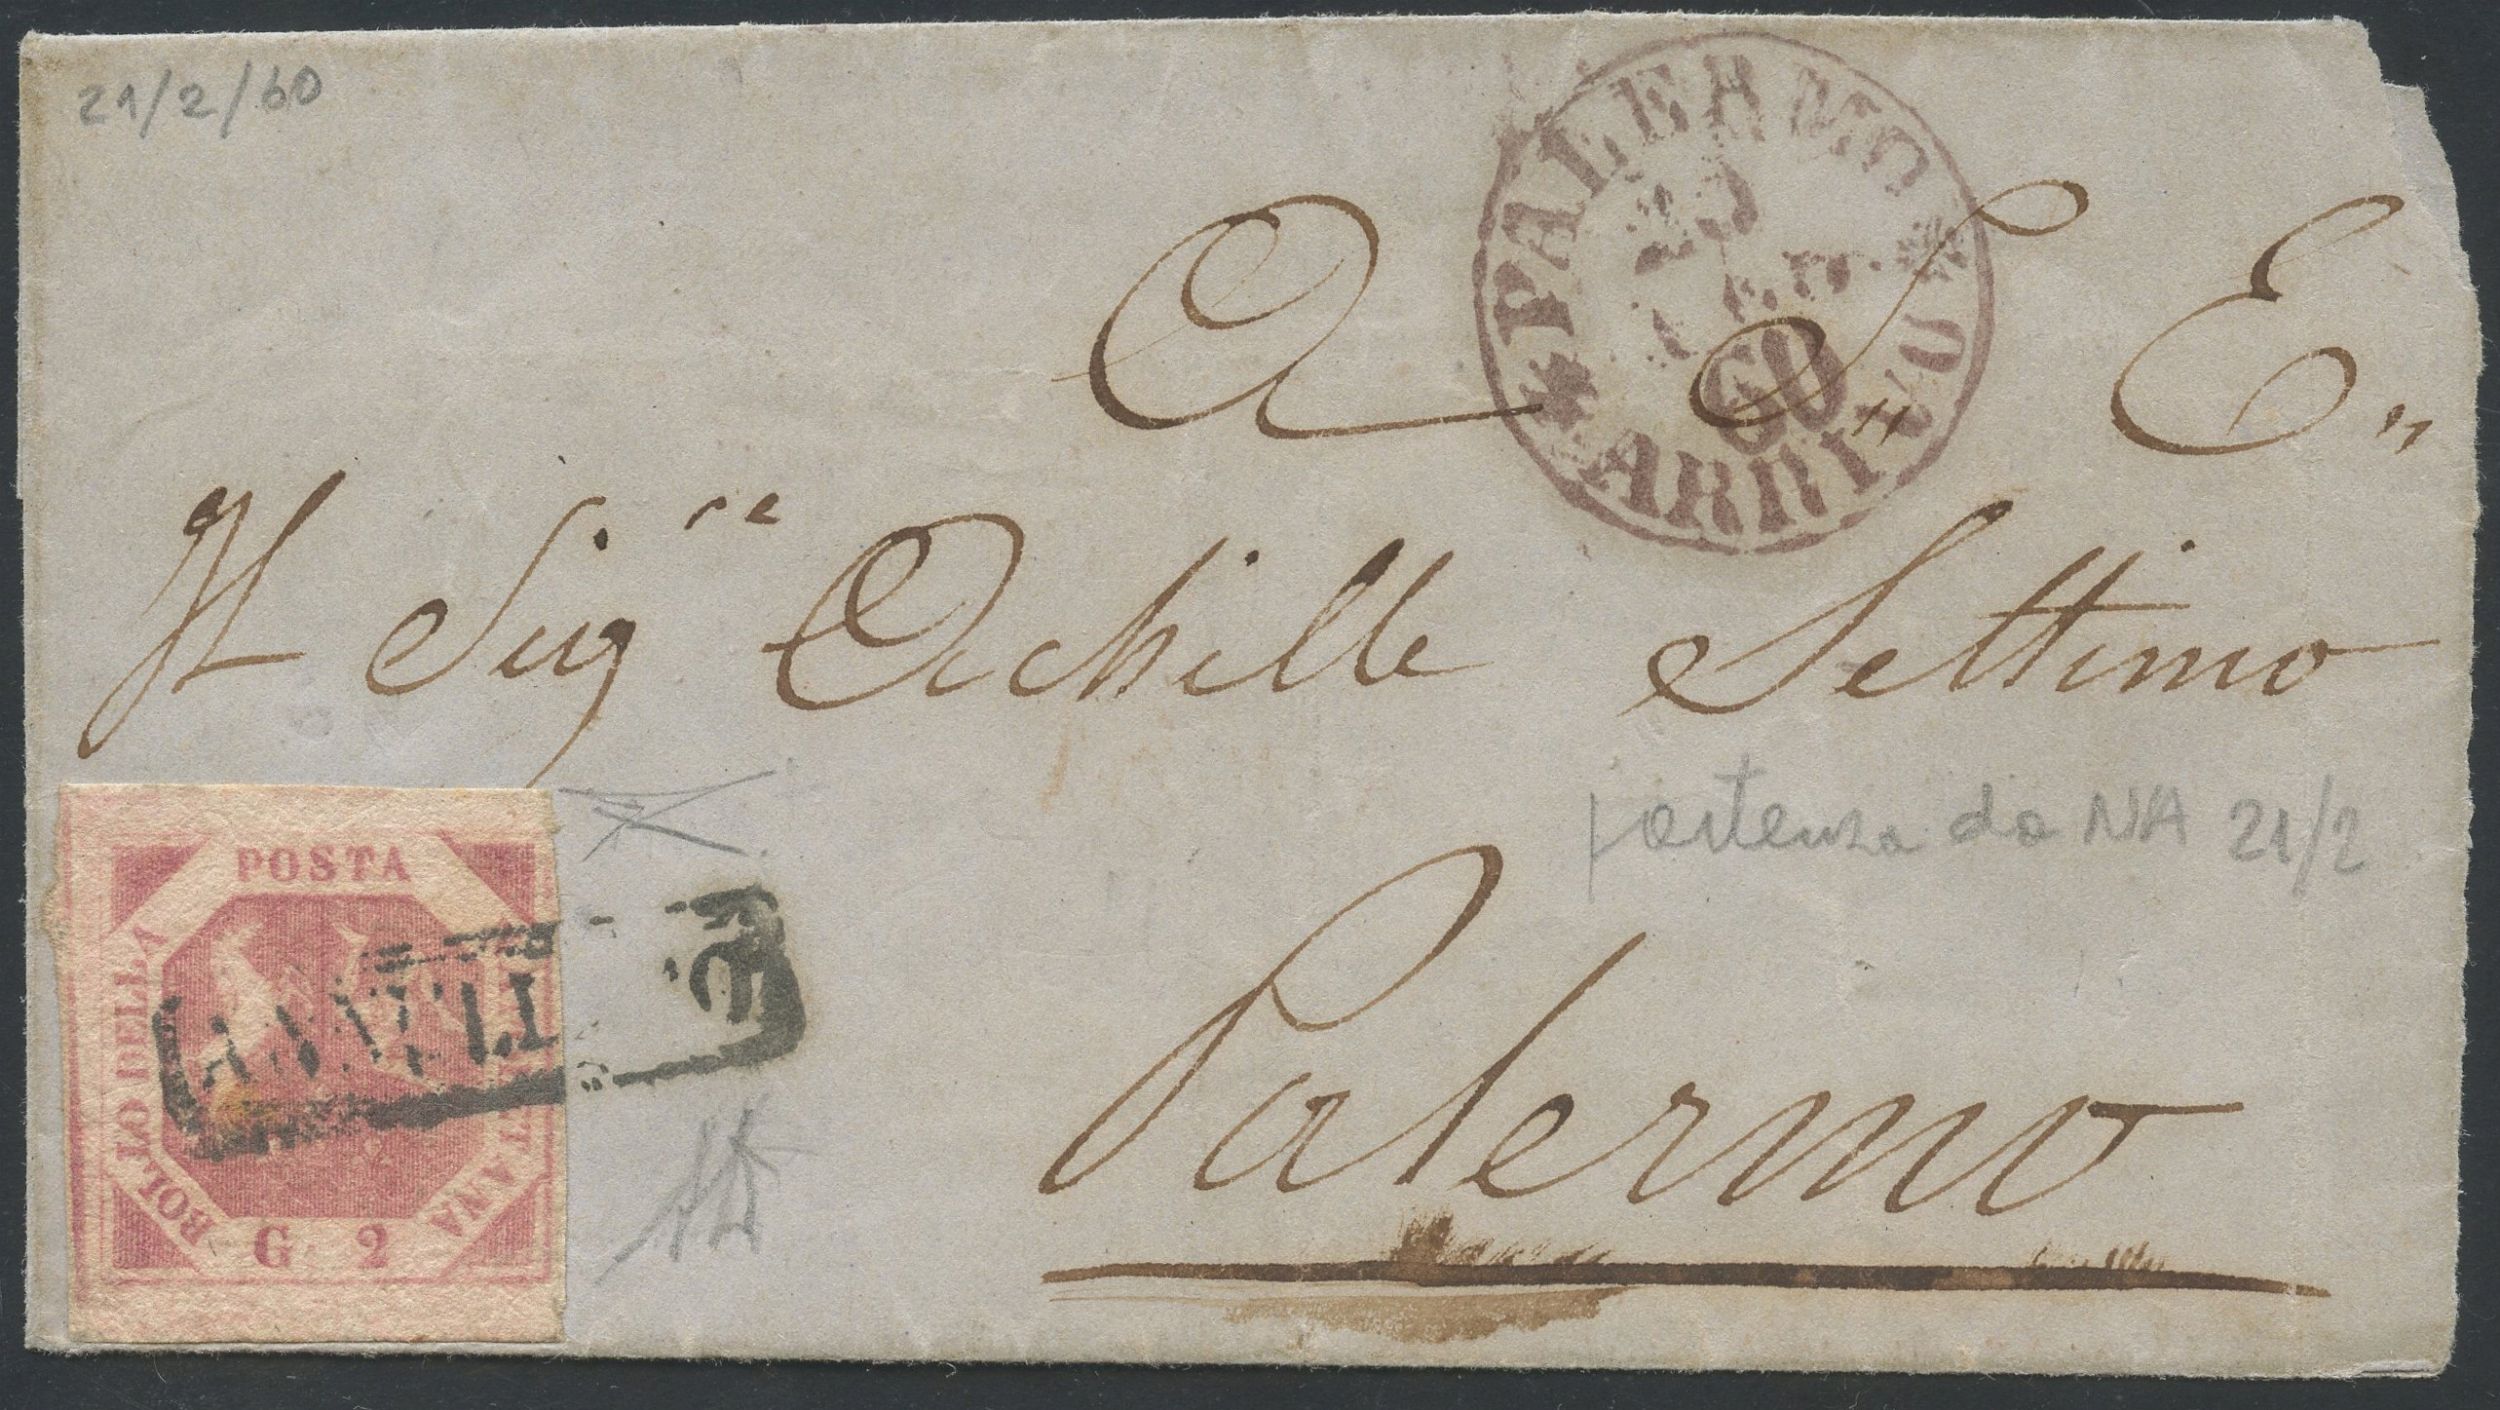 21/2/60
PALERMO
60
ARRIVO
A S" E"
Il Sig.re Achille Settimo
partenza da NA 21/2
Palermo
POSTA
BOLLO DELLA
G 2
ANNULLATO